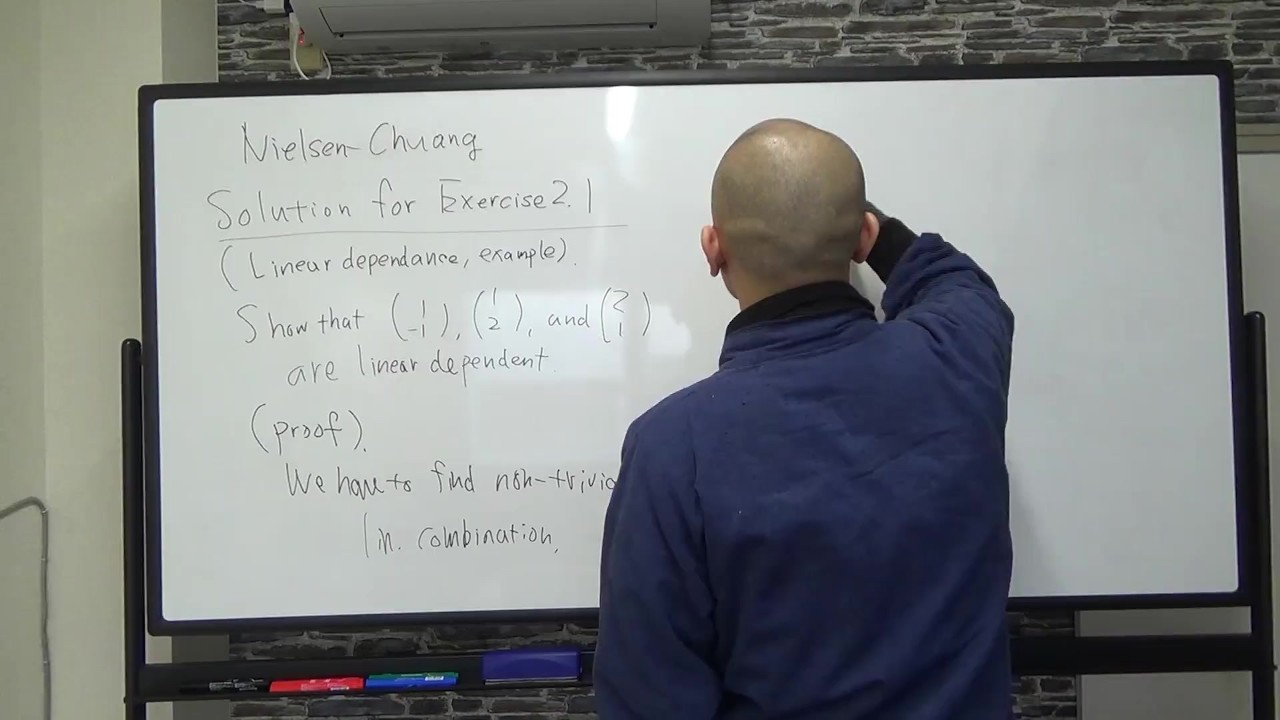 Nielsen-Chuang
Solution for Exercise 2.1
(Linear dependance, example).
Show that (1 -1), (1 2), and (2 1)
are linear dependent.
(proof).
We have to find non-trivia
lin. combination,